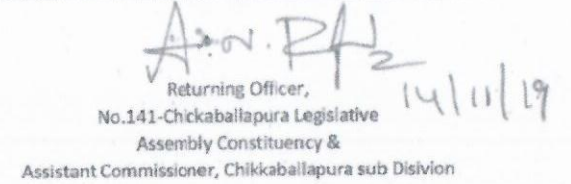 Returning Officer,
14/11/19
No.141-Chickaballapura Legislative
Assembly Constituency &
Assistant Commissioner, Chikkaballapura sub Disivion